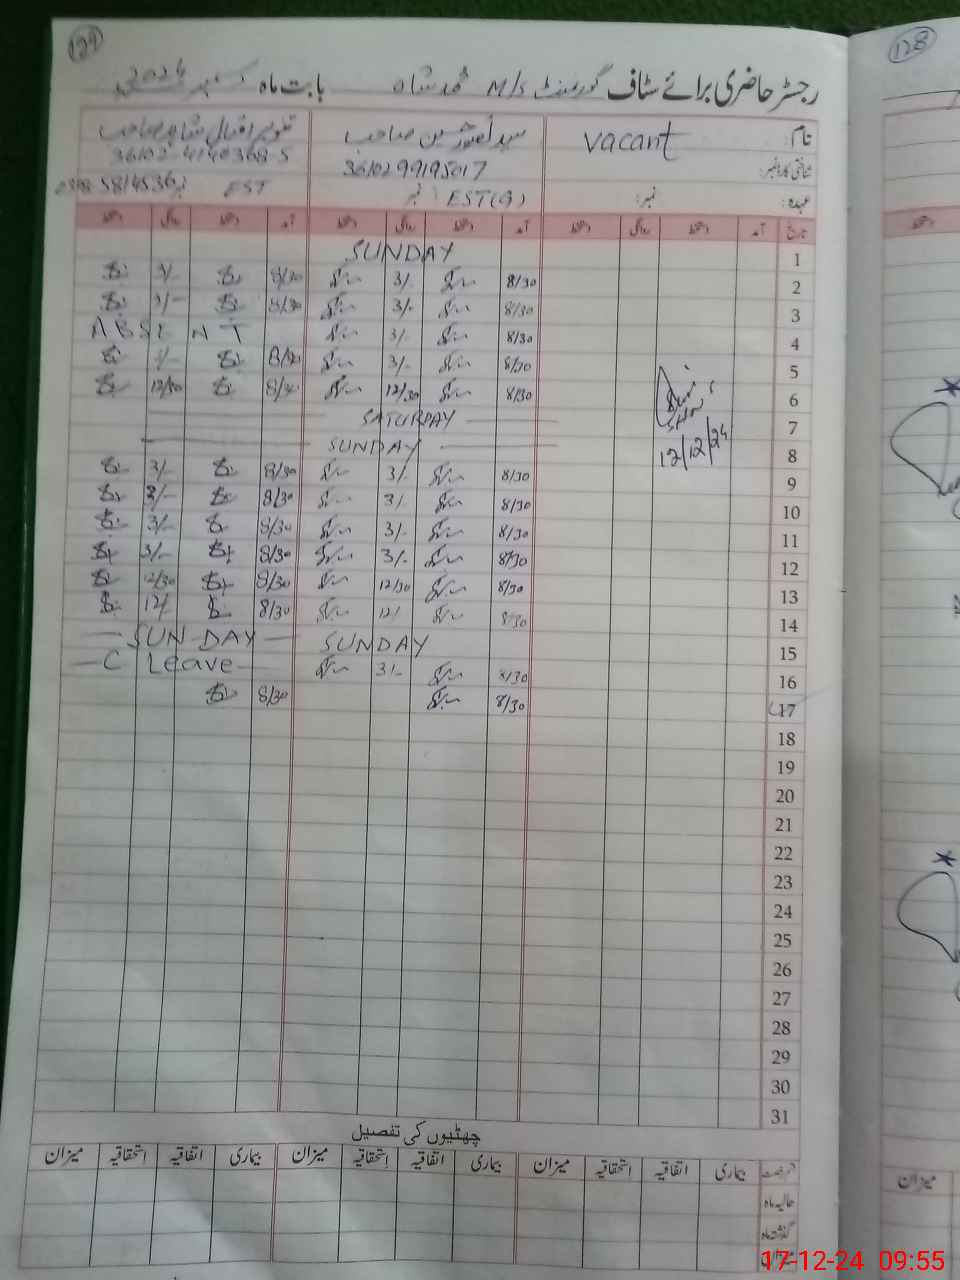 129
128
رجسٹر حاضری برائے سٹاف گورنمنٹ M/S محمد شاہ بابت ماہ دسمبر 2024
نام: vacant سید تصور حسین صاحب تنویر اقبال شاہد صاحب
شناختی کارڈ نمبر: 3610299195017 36102-4140368-5
عہدہ: نمبر: EST(G) نمبر 1 EST نمبر
تاریخ آمد دستخط روانگی دستخط آمد دستخط روانگی دستخط آمد دستخط روانگی دستخط
1 SUNDAY
2 8/30 3/- 8/30 3/-
3 8/30 3/- 8/30 3/-
4 8/30 3/- ABSENT
5 8/30 3/- 8/30 3/-
6 8/30 12/30 8/30 12/30
7 SATURDAY
8 SUNDAY
12/12/24
9 8/30 3/- 8/30 3/-
10 8/30 3/- 8/30 3/-
11 8/30 3/- 8/30 3/-
12 8/30 3/- 8/30 3/-
13 8/30 12/30 8/30 12/30
14 8/30 12/ 8/30 12/
15 SUNDAY SUNDAY
16 8/30 3/- C Leave
17 8/30 8/30
18
19
20
21
22
23
24
25
26
27
28
29
30
31
چھٹیوں کی تفصیل
رخصت بیماری اتفاقیہ استحقاقیہ میزان بیماری اتفاقیہ استحقاقیہ میزان بیماری اتفاقیہ استحقاقیہ میزان
حالیہ ماہ
گذشتہ ماہ
میزان
میزان
17-12-24 09:55